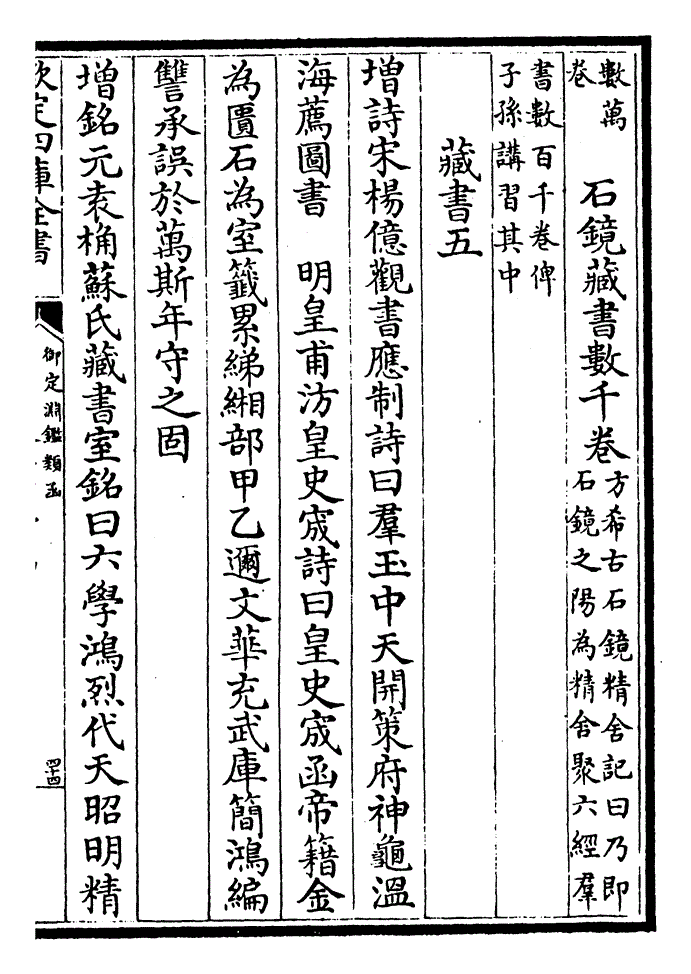 數萬
卷
石鏡藏書數千卷
方希古石鏡精舍記曰乃即
石鏡之陽為精舍聚六經羣
書數百千卷俾
子孫講習其中
藏書五
增詩宋楊億觀書應制詩曰羣玉中天開策府神龜温
海薦圖書　明皇甫汸皇史宬詩曰皇史宬函帝籍金
為匱石為室籤累綈緗部甲乙邇文華充武庫簡鴻編
讐承誤於萬斯年守之固
增銘元袁桷蘇氏藏書室銘曰六學鴻烈代天昭明精
欽定四庫全書
御定淵鑑類函
四十四